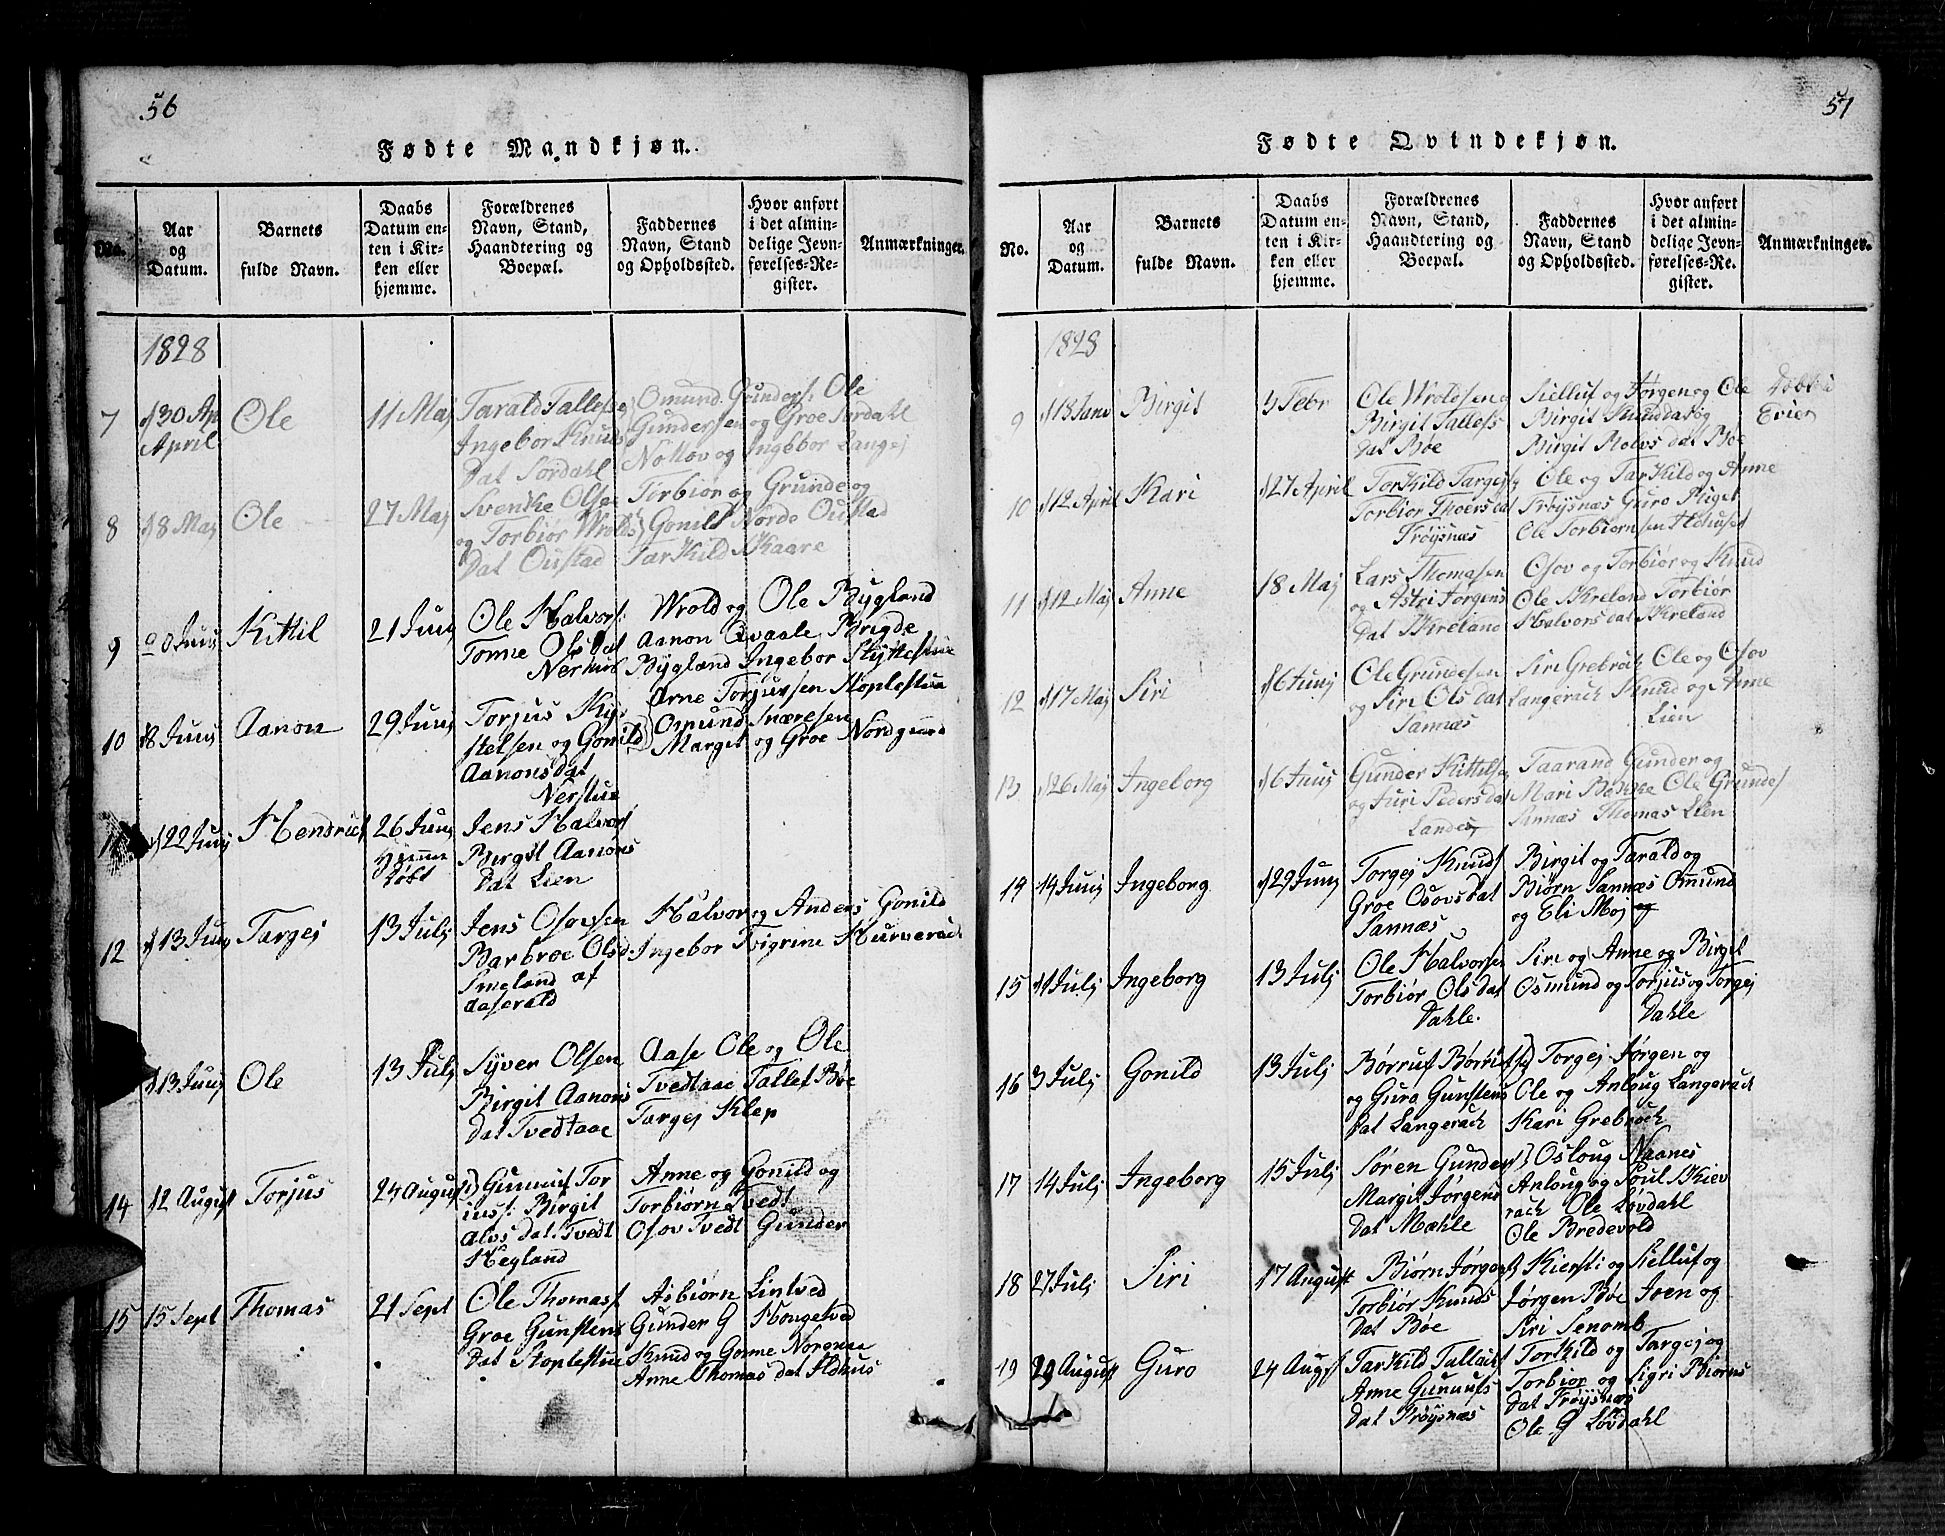 56
Fødte Mandkjøn.
No.
Aar og Datum.
Barnets fulde Navn.
Daabs Datum enten i Kirken eller hjemme.
Forældrenes Navn, Stand, Haandtering og Boepæl.
Faddernes Navn, Stand og Opholdssted.
Hvor anført i det almindelige Jevnførelses-Register.
Anmærkninger.
1828
7 d 30 Ap April Ole 11 Maj
Tarald Tallefs
Ingebor Knuds
Dat Sordahl
Omund Gunders: Ole
Gundersen og Groe Sordahl
og Ingebor Langej
8 d 8 Maj Ole 27 Maj
Svenke Olsen
og Torbiør Wrolds
Dat Oustad
Torbiør og Grunde og
Gonild Nordo Oustad
TarKild Skaare
9 Juni Kittil 21 Juni
Ole Halvors:
Tonne Olsdat
Wrold og Ole Bygland
Aanon Qvaale Brigde
Bygland Ingebor
10 d 8 Juni Aanon 29 Juni
Torjus Ky-
stelsen og Gonild
Aanonsdat
Nerstue
Arne Torjussen Stoplestue
Omund
Margit og Groe Nordgaard
11 d 22 Juni Hendrick 26 Juni Hjemme døbt
Jens Halvors
Birgit Aanons
Dat Lien
12 d 13 Juni Targej 13 Julj
Jens Osovsen
Barbroe Olsd:
Smeland af
Aaserald
Halvor og Anders Gonild
Ingebor
d 13 Junj Ole 13 Julj
Syver Olsen
Birgit Aanons
Dat Tvedtaae
Aase Ole og Ole
Tvedtaae Tallef Bøe
Targej Klep
14 12 August Torjus 24 August
Gunnuf Tor
jus: Birgit
Alvs Dat: Tvedt
Hegland
Anne og Gonild og
Torbiørn Tvedt
Osov Tvedt Gunder
15 15 Sept Thomas 21 Sept
Ole Thomass
Groe Gunstens
Dat Stoplestue
Asbiørn Lintved
Gunder G Hongetved
Knud og Gonne
Anne Thomas dat
57
Fødte Qvindekjøn.
No.
Aar og Datum.
Barnets fulde Navn.
Daabs Datum enten i Kirken eller hjemme.
Forældrenes Navn, Stand, Haandtering og Boepæl.
Faddernes Navn, Stand og Opholdssted.
Hvor anført i det almindelige Jevnførelses-Register.
Anmærkninger.
1828
9 d 13 Janv Birgit 3 Febr
Ole Wroldsen
Birgit Tallefs
Dat Bøe
Sielluf og Jørgen og Ole
Birgit Knuddat og
Birgit Rolvs dat Bøe
Døbt i
Evien
10 d 12 April Kari d 27 April
TorKild Targejs
Torbior Thoers dat
Frøysnæs
Ole og TarKild og Anne
Frøysnæs Guro
Ole Torbiornsen
11 d 12 Maj Anne 18 Maj
Lars Thomasen
og Astri Jorgens
Dat Skreland
Osov og Torbiør og Knud
Ole Skreland Torbiør
Halvors dat Skreland
12 d 17 Maj Siri d 6 Junj
Ole Grundesen
og Siri Ols Dat
Sannæs
Siri Grebrock Ole og Osov
Langerack Knud og Anne
Lien
13 d 26 Maj Ingeborg d 6 Junj
Gunder Kittelsen
og Juri Peders dat
Landes
Taarand Gunder og
Mari Ole Grundes
Sinnæs Thomas Lien
14 14 Junj Ingeborg d 29 Junj
Torgej Knuds
Groe Osovs dat
Sannæs
Birgit og Tarald og
Biørn Sannæs Omund
og Eli Moj og
15 d 1 Julj Ingeborg 13 Julj
Ole Halvorsen
Torbiør Ols Dat
Dahle.
Siri og Anne og Birgit
Osmund og Torjus og Torgej
Dahle
16 3 Julj Gonild 13 Julj
Børruf Børru
og Guro Gunstens
Dat Langerack
Torgej Jørgen og
Ole og Anloug Langerack
Kari Grebrock
17 14 Julj Ingeborg 15 Julj
Søren Gunders
Margit Jørgens
Dat Mæhle
Osloug Naanes
Anloug og Poul Skiev
rack Ole Løvdahl
Ole Bredevold
18 27 Julj Siri 17 August
Biørn Jørgens
Torbiør Knuds
Dat Bøe
Kiersti og Siellus og
Jørgen Bøe Joen og
Siri Senomb
19 29 August Guro 24 Augst
TarKild Tallacs
Anne Gunnufs
Dat Frøysnæs
TorKild og Targej og
Torbior og Sigri Biorns
Dat Frøysnæs
Ole G Løvdahl